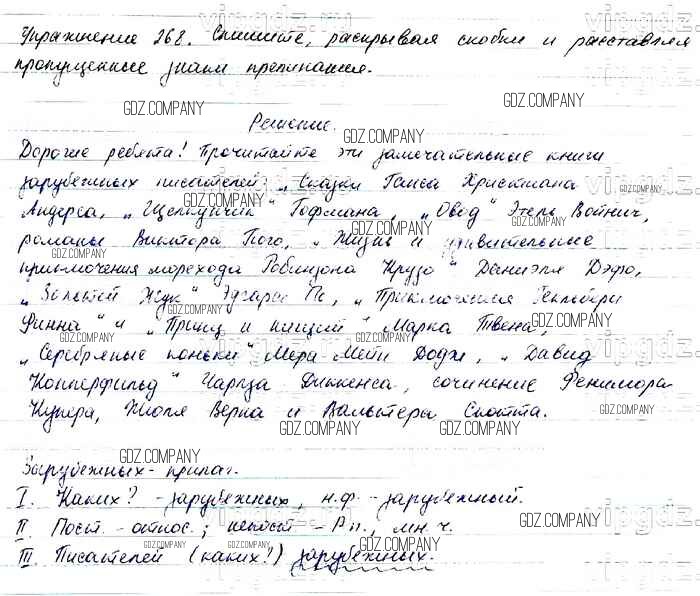 Упражнение 268. Спишите, раскрывая скобки и расставляя
пропущенные знаки препинания.
Решение.
Дорогие ребята! Прочитайте эти замечательные книги
зарубежных писателей: „Сказки Ганса Христиана
Андерса, „Щелкунчик" Гофмана, „Овод" Этель Войнич,
романы Виктора Гюго, „Жизнь и удивительные
приключения морехода Робинзона Крузо" Даниэля Дэфо,
„Золотой Жук" Эдгара По, „Приключения Гекльбери
Финна" и „Принц и нищий" Марка Твена,
„Серебряные коньки" Мери Мейп Додж, „Давид
Копперфильд" Чарлза Диккенса, сочинение Фенимора
Купера, Жюля Верна и Вальтера Скотта.
Зарубежных - прилаг.
I. Каких? - зарубежных, н.ф. - зарубежный.
II. Пост. - относ.; непост - Р.п., мн.ч.
III. Писателей (каких?) зарубежных.